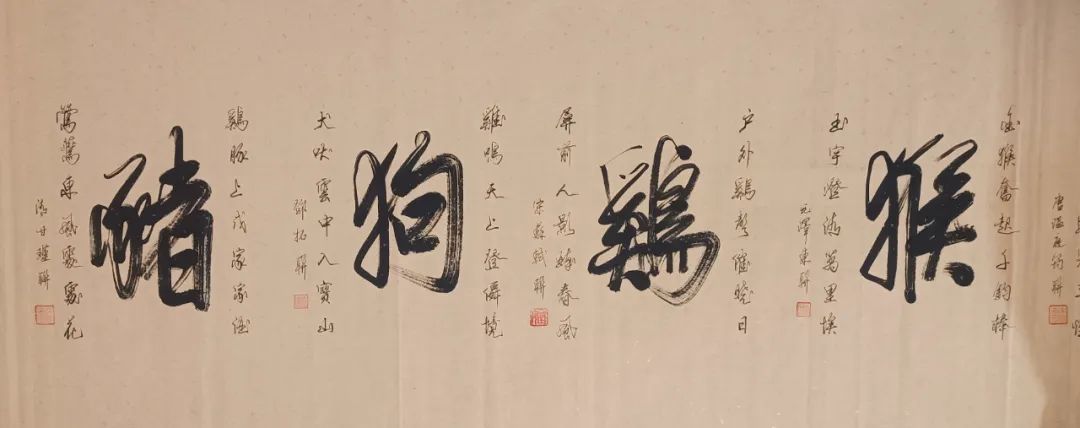 唐温庭筠聯
金猴奮起千鈞棒
猴
玉宇澄清萬里埃
毛澤東聯
户外鷄聲催曉日
鷄
屏前人影春風
宋蘇軾聯
雞鳴天上登僊境
狗
犬吠雲中入寶山
鄧拓聯
鷄豚上戊家家
豬
鶯東風處處花
甘瑾聯